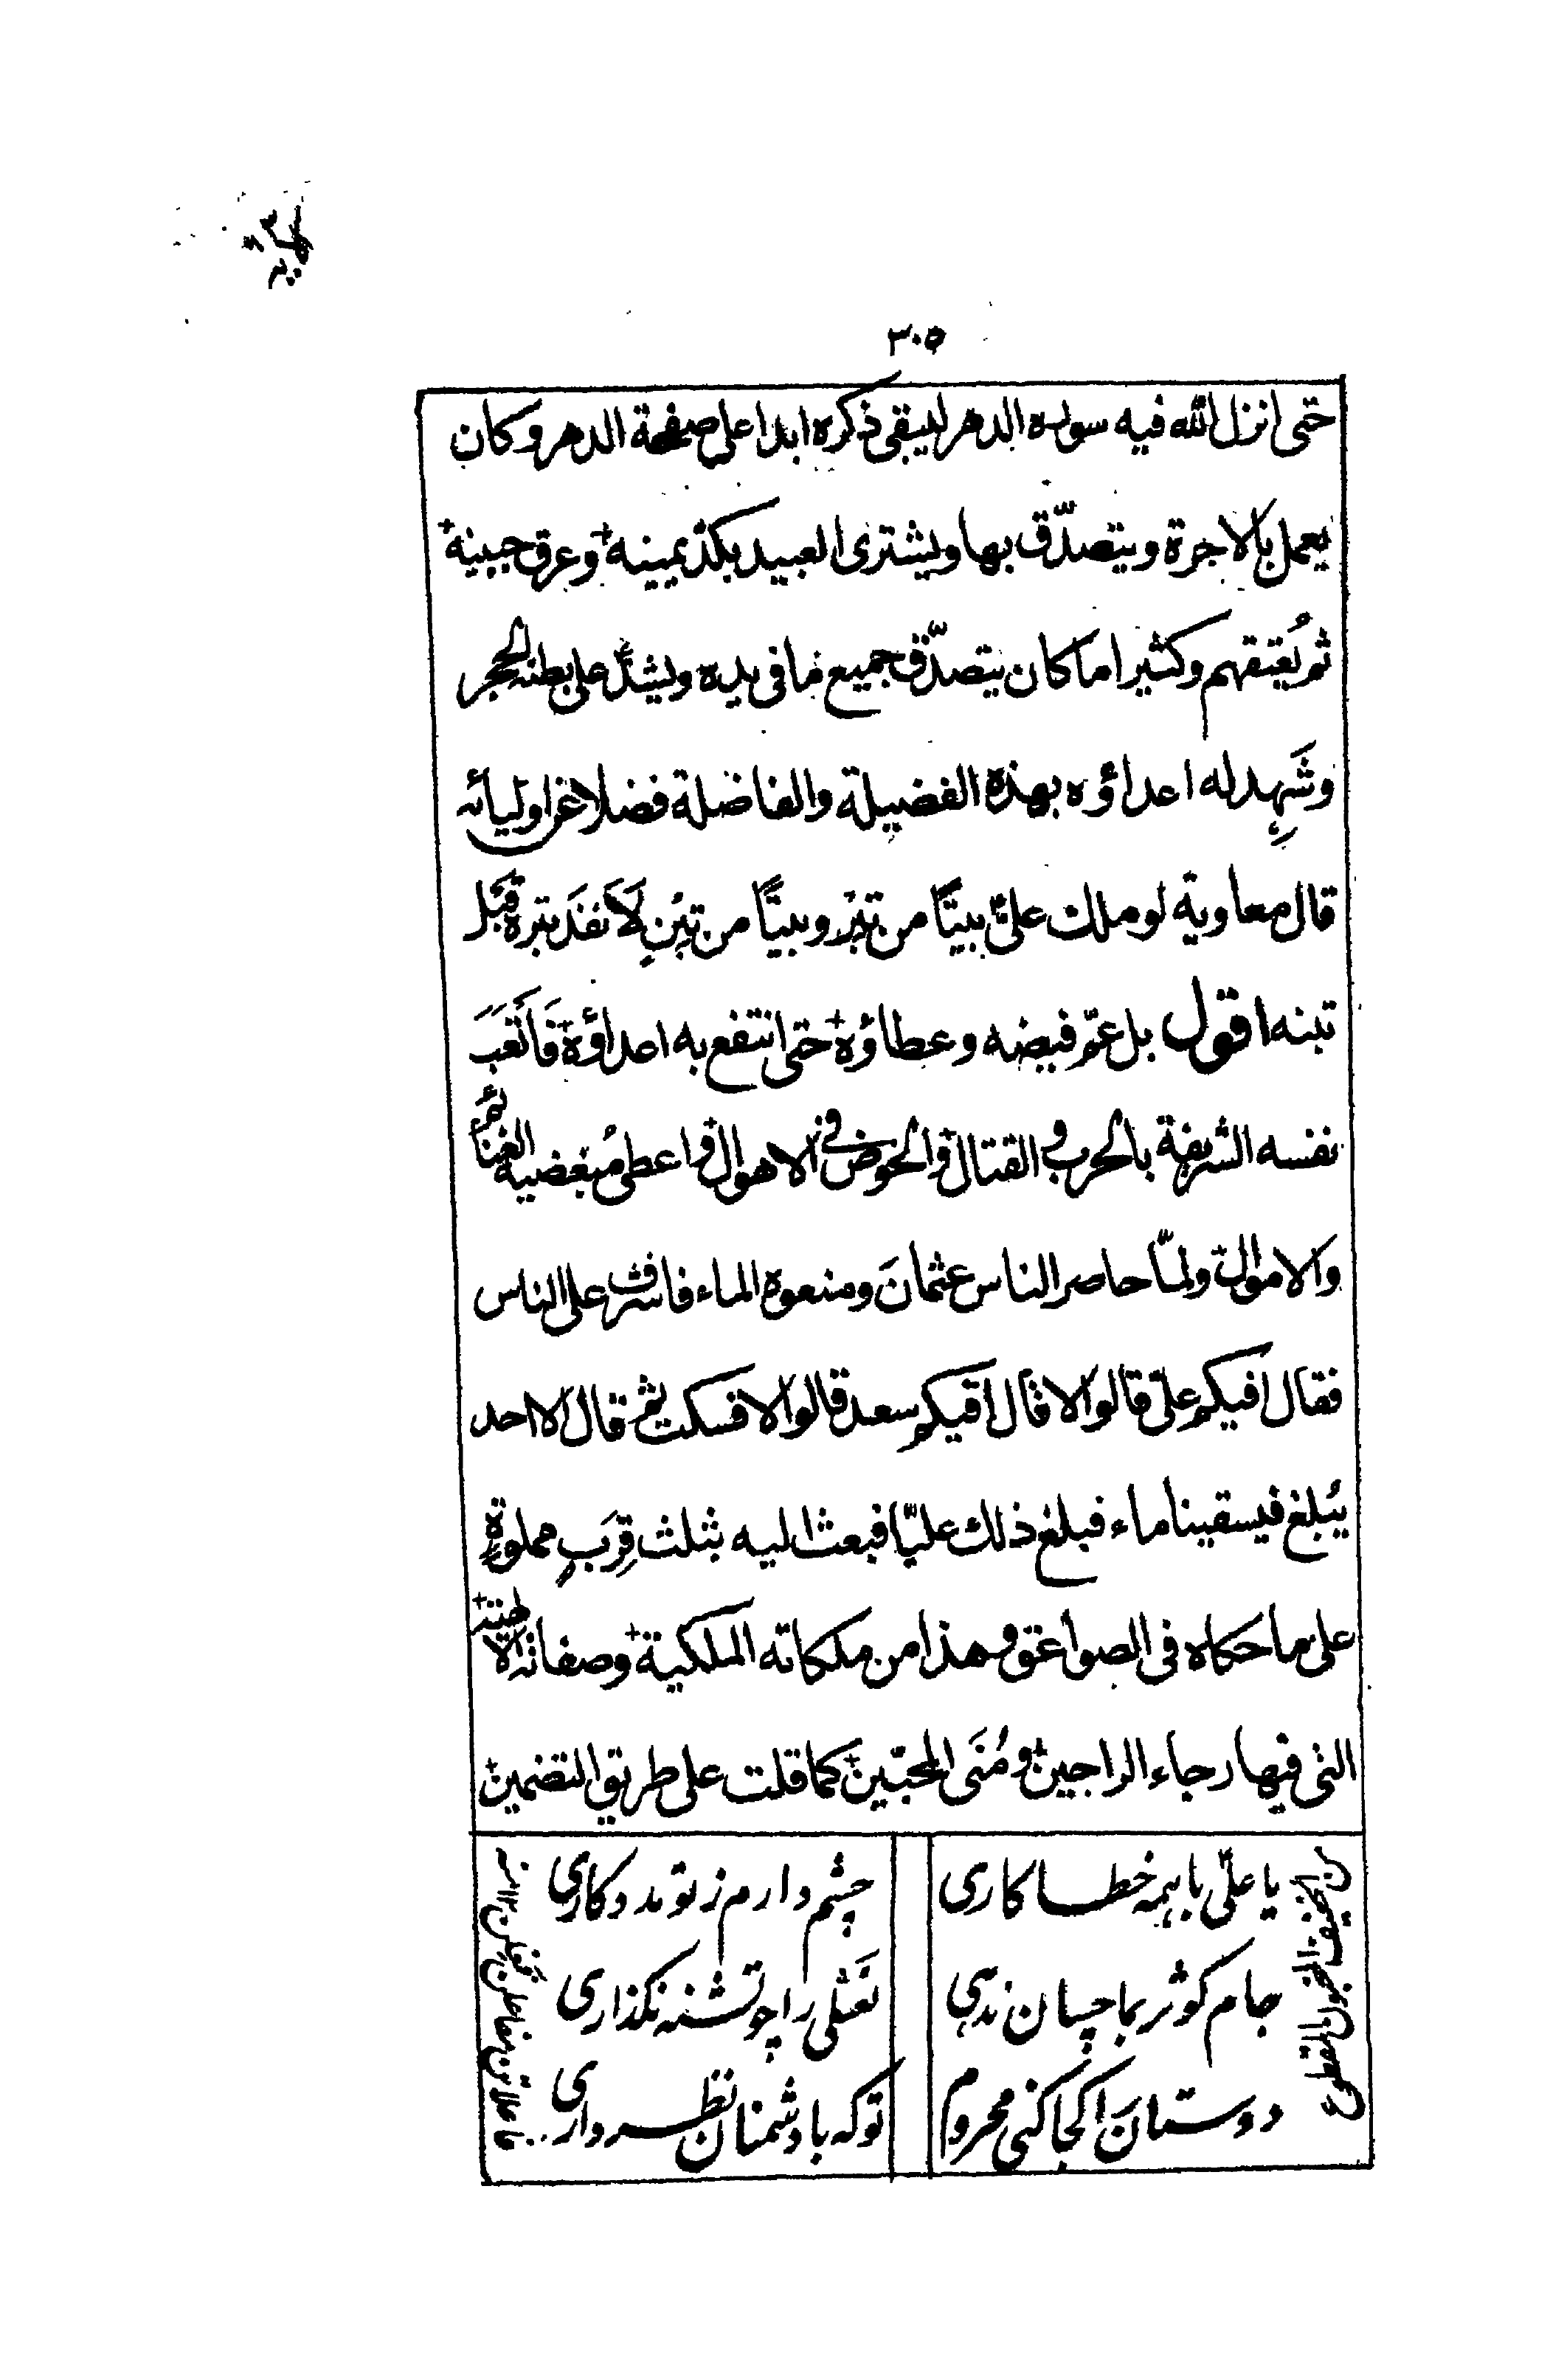 ٣٠٥
حتى انزل الله فيه سورة الدهر ليبقى ذكره ابدا على صفحة الدهر وكان
يعمل بالاجرة ويتصدّق بها ويشترى العبيد بكدّ يمينه وعرق جبينه
ثم يُعتقهم وكثيرا ما كان يتصدّق جميع ما فى يده ويشدّ على بطنه الحجر
وشَهِد له اعداؤه بهذه الفضيلة والفاضلة فضلا عن اوليائه
قال معاوية لو ملك علىٌّ بيتًا من تِبْرٍ وبيتًا من تِبْنٍ لَاَنفَدَ تبره قَبْل
تبنه اقول بل عمّ فيضه وعطاؤه حتى انتفع به اعداؤه فَاَتعَبَ
نفسه الشريفة بالحرب و القتال والخوض فى الاهوال واعطى مُبغضيه الغنائم
والاموال ولمّا حاصر الناس عثمانَ ومنعوه الماء فاشرف على الناس
فقال افيكم علىّ قالوا لا قال افيكم سعد قالوا لا فسكت ثم قال الا احد
يُبلغ فيسقينا ماء فبلغ ذلك عليّا فبعث اليه بثلث قِرَبٍ مملوة
على ما حكاه فى الصواعق وهذا من ملكاته الملكية وصفاته الالهية
التى فيها رجاء الراجين ومُنَى المحبّين كما قلت على طريق التضمين
يا علىّ با همه خطاكارى
چشم دارم ز تو مددكارى
جام كوثر بما چسان ندهى
نَعثلى را چو تشنه نگذارى
دوستان را كجا كنى محروم
تو كه با دشمنان نظر دارى
من الخفيف المخبون المقطوع
فاعلاتن مفاعلن فعلن